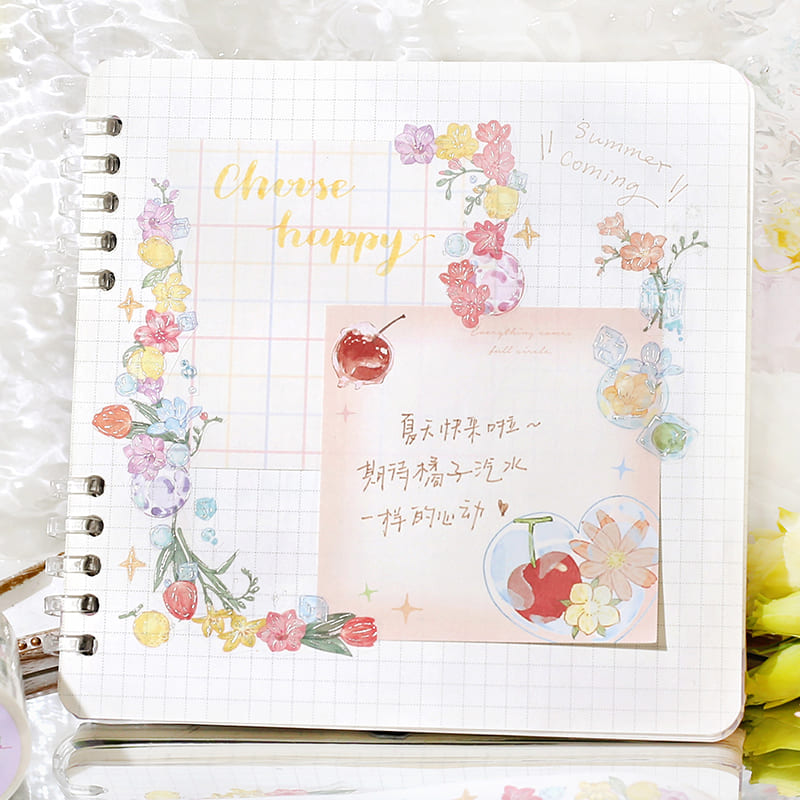 Choose
happy
Summer
coming
Everything comes
full circle
夏天快来啦~
期待橘子汽水
一样的心动